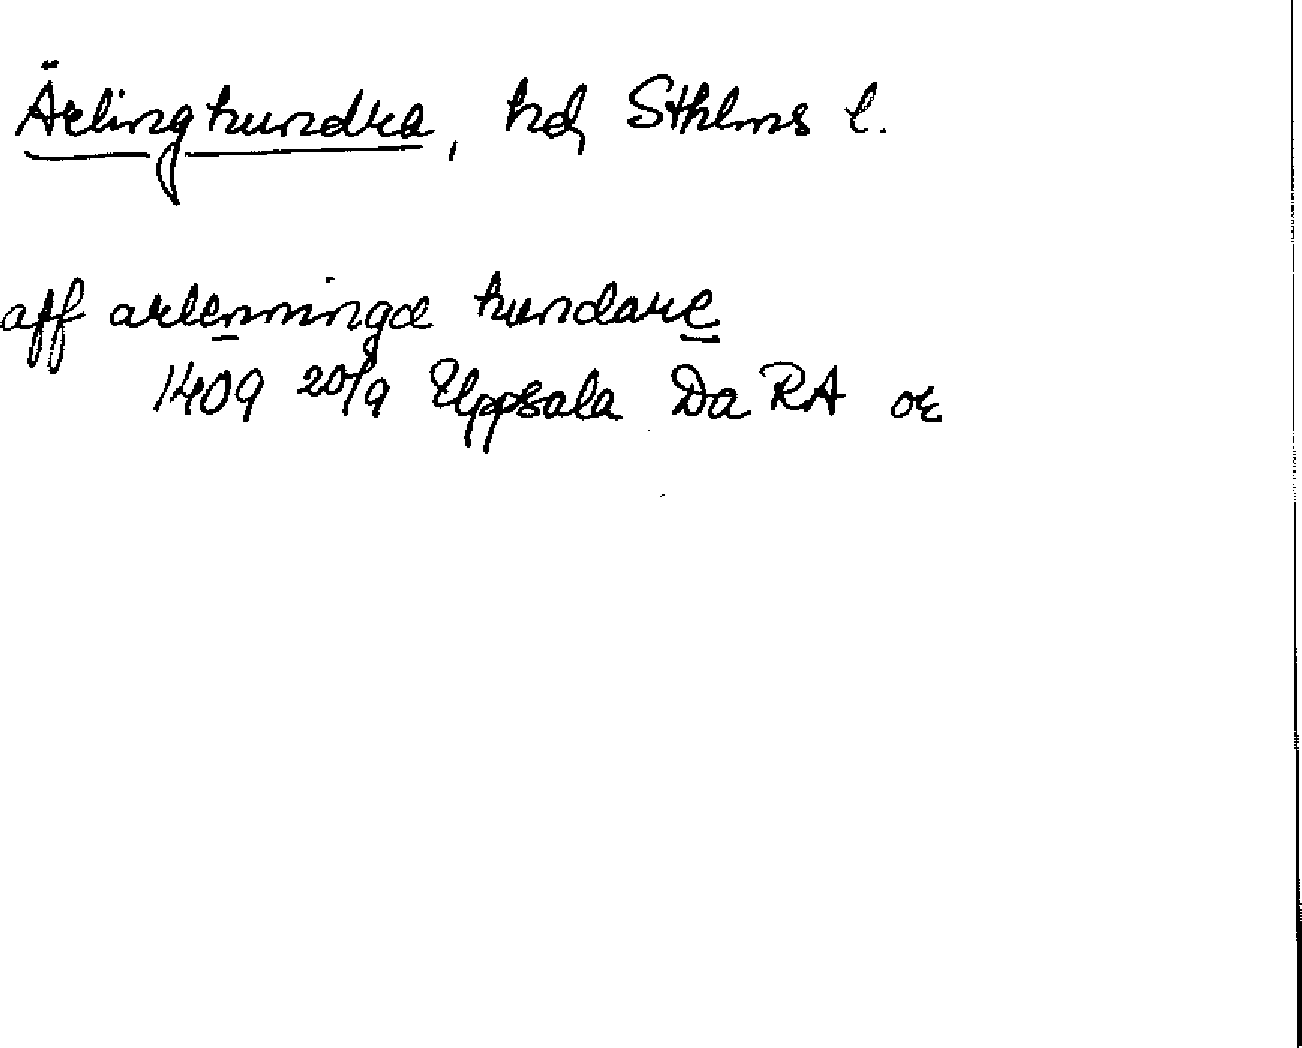 Ärlinghundra, hd, Sthlms l.
aff arlenninga hundare
1409 20/9 Uppsala Da RA or